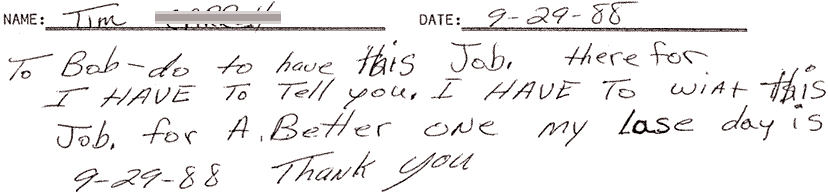 NAME: Tim DATE: 9-29-88
To Bob-do to have this Job. there for
I HAVE To Tell you. I HAVE TO wiAt this
Job. for A. Better one my lase day is
9-29-88 Thank you